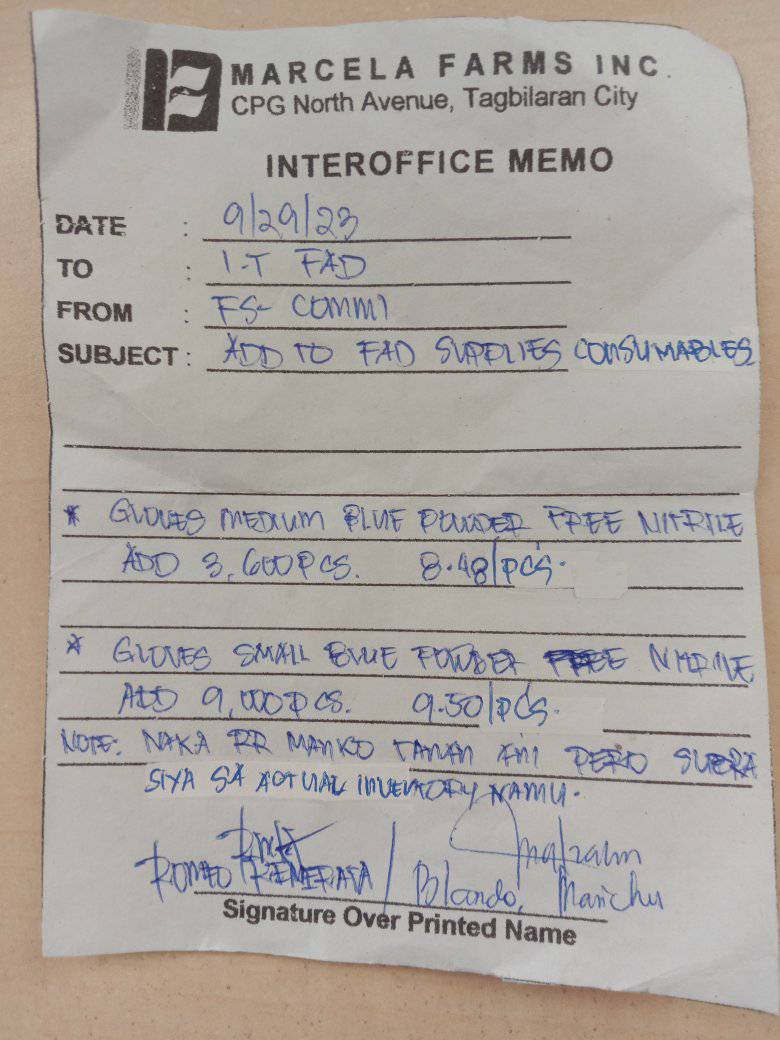 MARCELA FARMS INC.
CPG North Avenue, Tagbilaran City
INTEROFFICE MEMO
DATE : 9/29/23
TO : I.T FAD
FROM : FS- COMMI
SUBJECT : ADD TO FAD SUPPLIES CONSUMABLES
* GLOVES MEDIUM BLUE POWDER FREE NITRILE
ADD 3,600 PCS. 8.48/PCS.
* GLOVES SMALL BLUE POWDER FREE NITRILE
ADD 9,000 PCS. 9.50/PCS.
NOTE: NAKA RR MANKO TANAN ANI PERO SUBRA
SIYA SA ACTUAL INVENTORY NAMU.
ROMEO / Blando, Marichu
Signature Over Printed Name